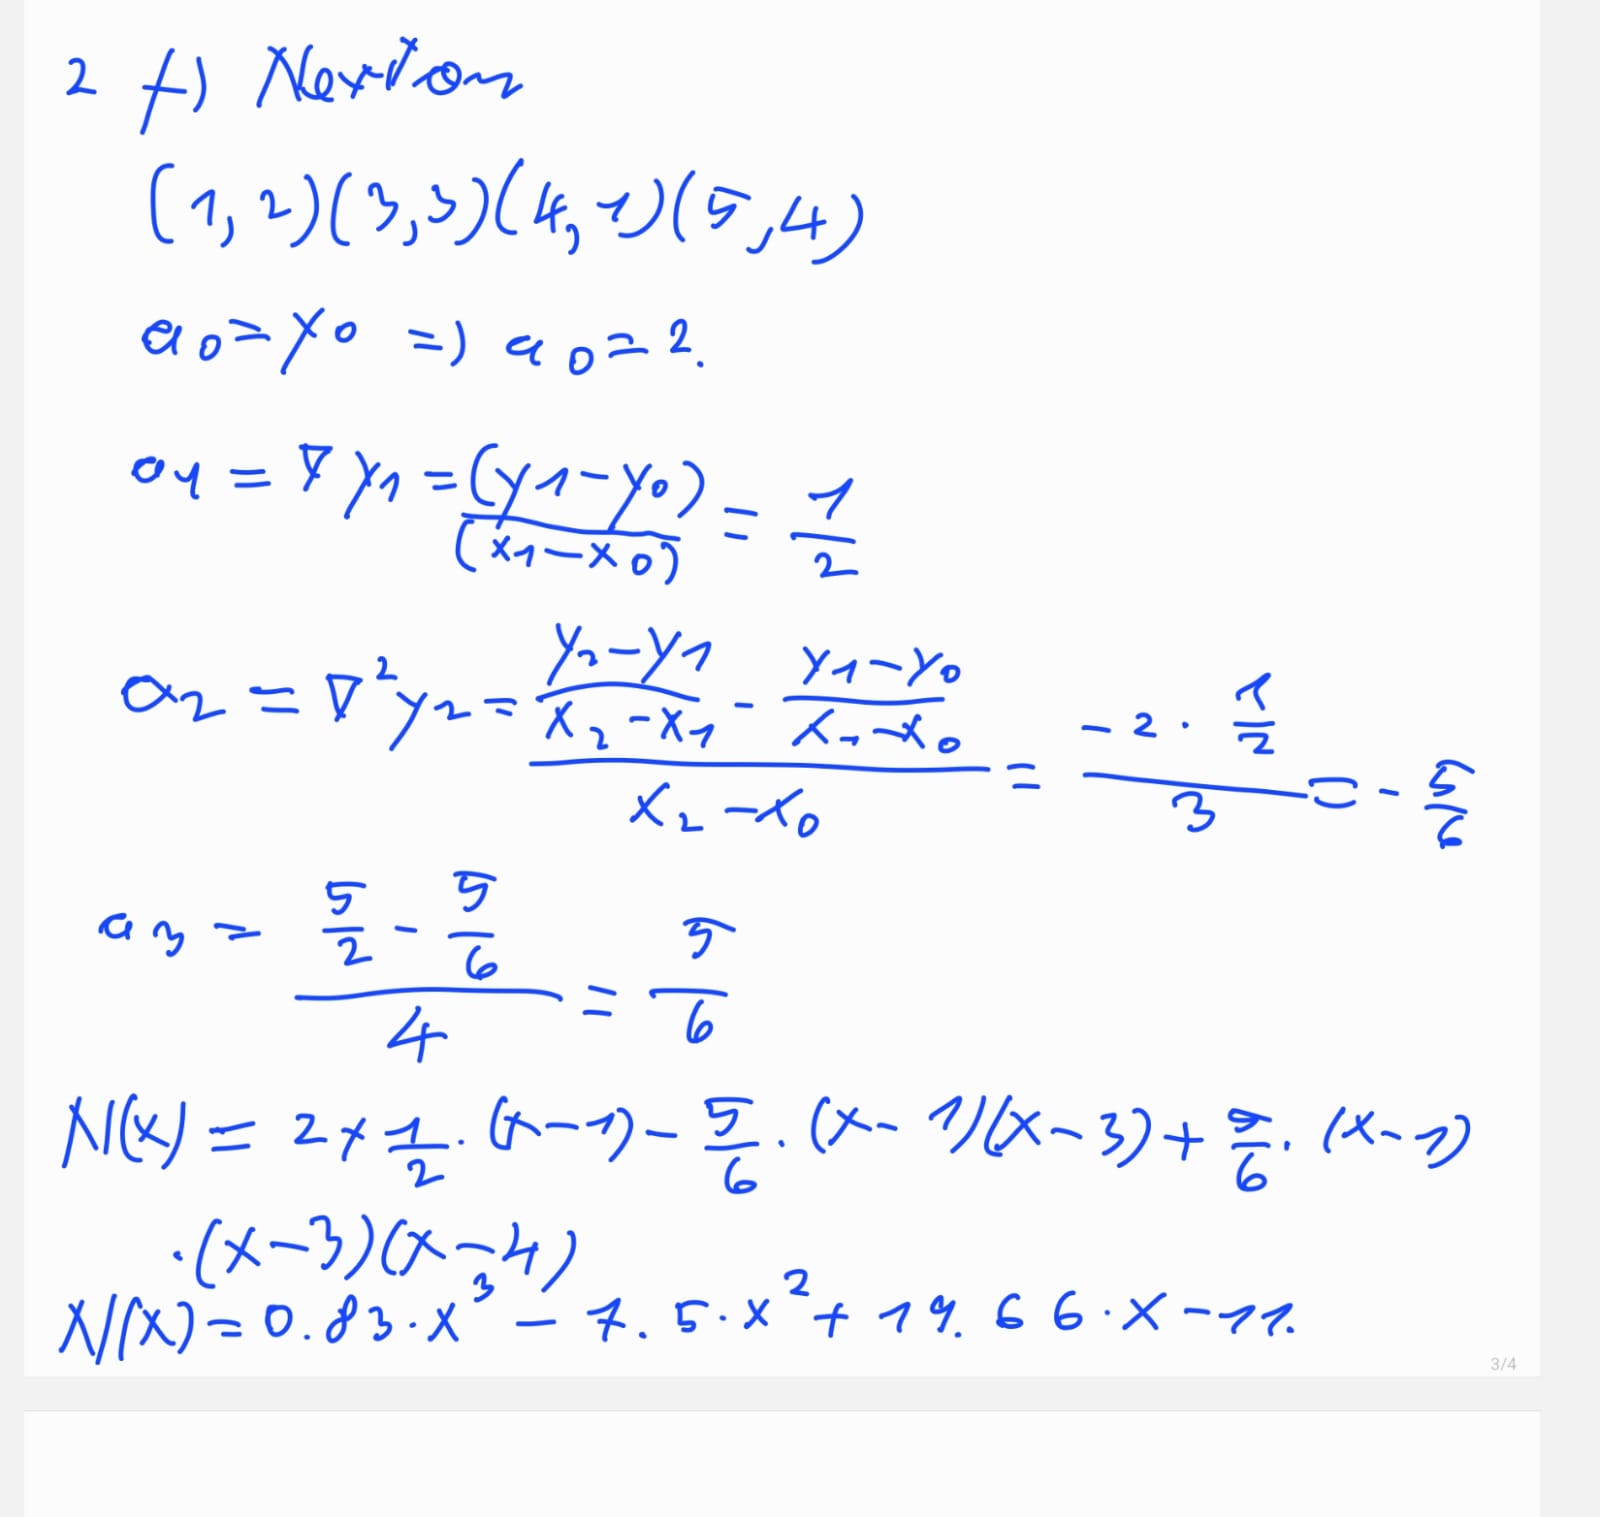 2 f) Newton
(1, 2)(3,3)(4, 1)(5,4)
a0 = y0 => a0 = 2.
a1 = ∇y1 = (y1-y0)/(x1-x0) = 1/2
a2 = ∇²y2 = ((y2-y1)/(x2-x1) - (y1-y0)/(x1-x0))/(x2-x0) = (-2 · 1/2)/3 = - 5/6
a3 = (5/2 - 5/6)/4 = 5/6
N(x) = 2 + 1/2 · (x-1) - 5/6 · (x-1)(x-3) + 5/6 · (x-1)
·(x-3)(x-4)
N(x) = 0.83·x³ - 7.5·x² + 19.66·x - 11.
3/4